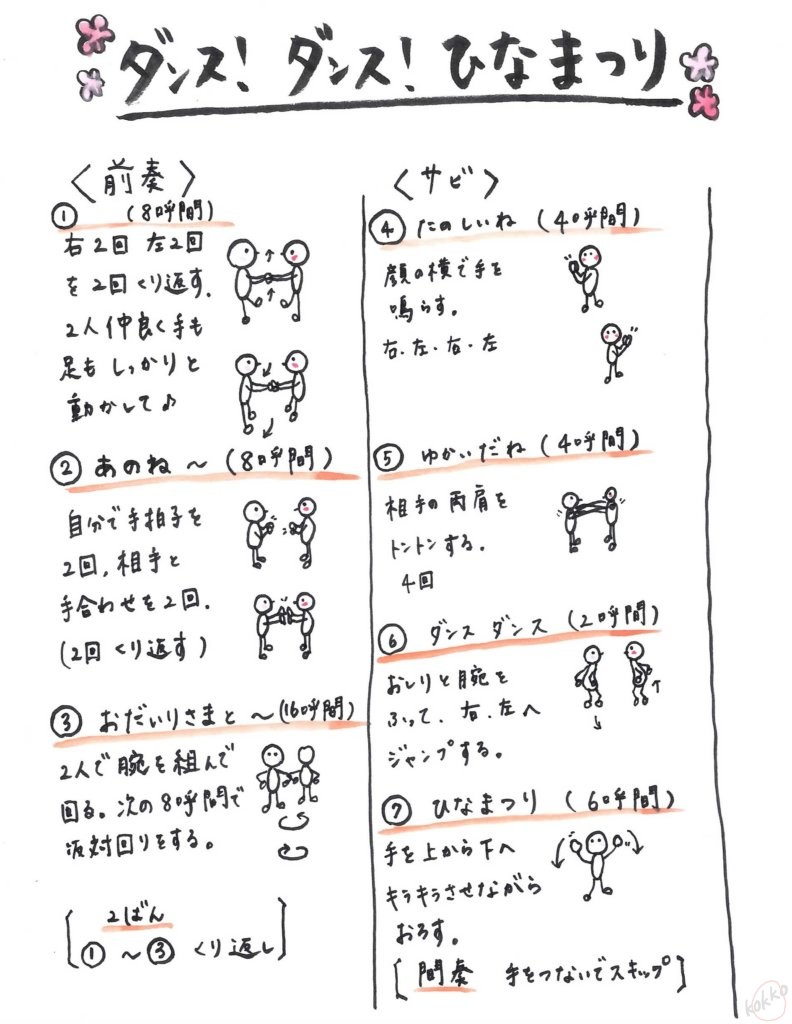 ダンス! ダンス! ひなまつり
〈前奏〉
① (8呼間)
右2回 左2回
を2回くり返す.
2人仲良く手も
足もしっかりと
動かして♪
② あのね~ (8呼間)
自分で手拍子を
2回,相手と
手合わせを2回.
(2回くり返す)
③ おだいりさまと~(16呼間)
2人で腕を組んで
回る。次の8呼間で
反対回りをする。
[2ばん
①~③ くり返し]
〈サビ〉
④ たのしいね (4呼間)
顔の横で手を
鳴らす。
右.左.右.左
⑤ ゆかいだね (4呼間)
相手の両肩を
トントンする.
4回
⑥ ダンス ダンス (2呼間)
おしりと腕を
ふって、右.左へ
ジャンプする。
⑦ ひなまつり (6呼間)
手を上から下へ
キラキラさせながら
おろす。
[間奏 手をつないでスキップ]
kokko